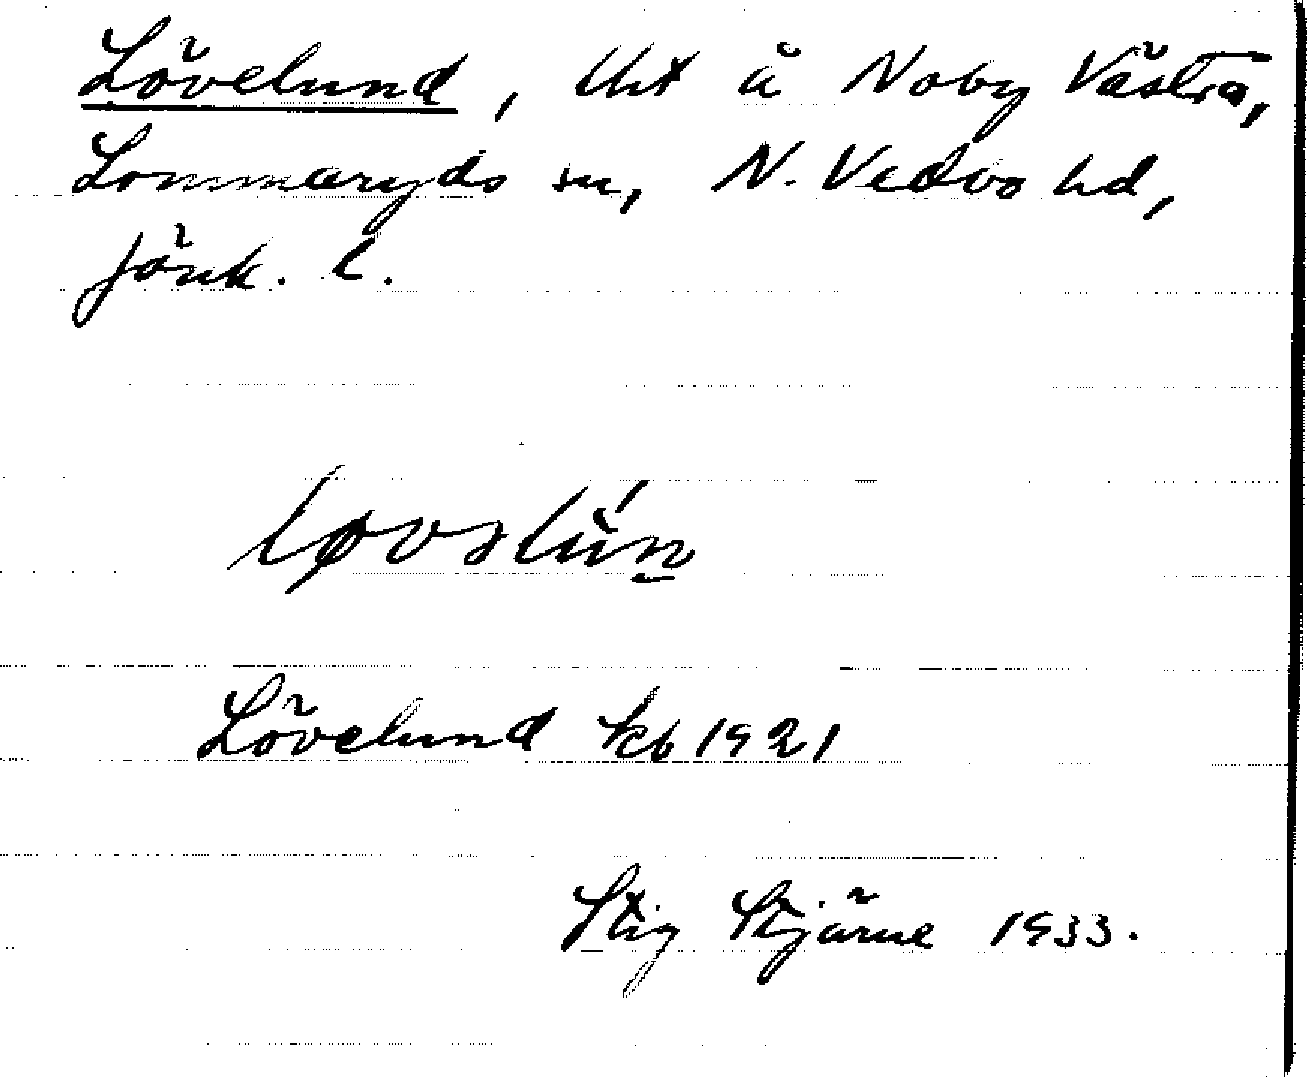 Lövelund, Uxt å Noby Västra,
Lommaryds sn, N. Vedbo hd,
Jönk. l.
Lövelund kb 1921
Stig Stjärne 1933.